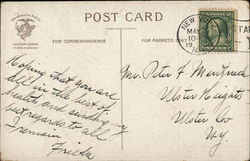 POST CARD
FOR CORRESPONDENCE
FOR ADDRESS ONLY
NEW
MAY
10
19
Hoping that you are
all in the best of
health and sending my
regards to all
I remain
Frieda
Mr. Peter F
Ulster Heights
Ulster Co
N.Y.